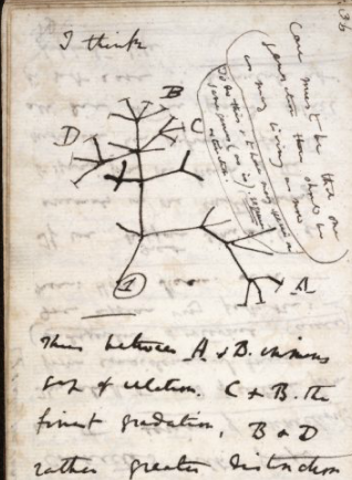 36
I think
Case must be that one
generation then should be
as many living as now
To do this & to have many species in
same genus (as is) requires
extinction.
B
D
C
1
A
Thus between A & B. immense
gap of relation. C & B. the
finest gradation, B & D
rather greater distinction